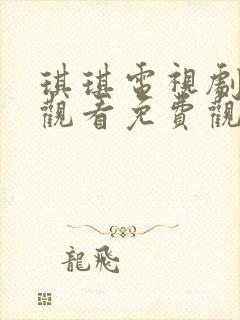 琪琪電視劇
觀看免費觀
龍飛